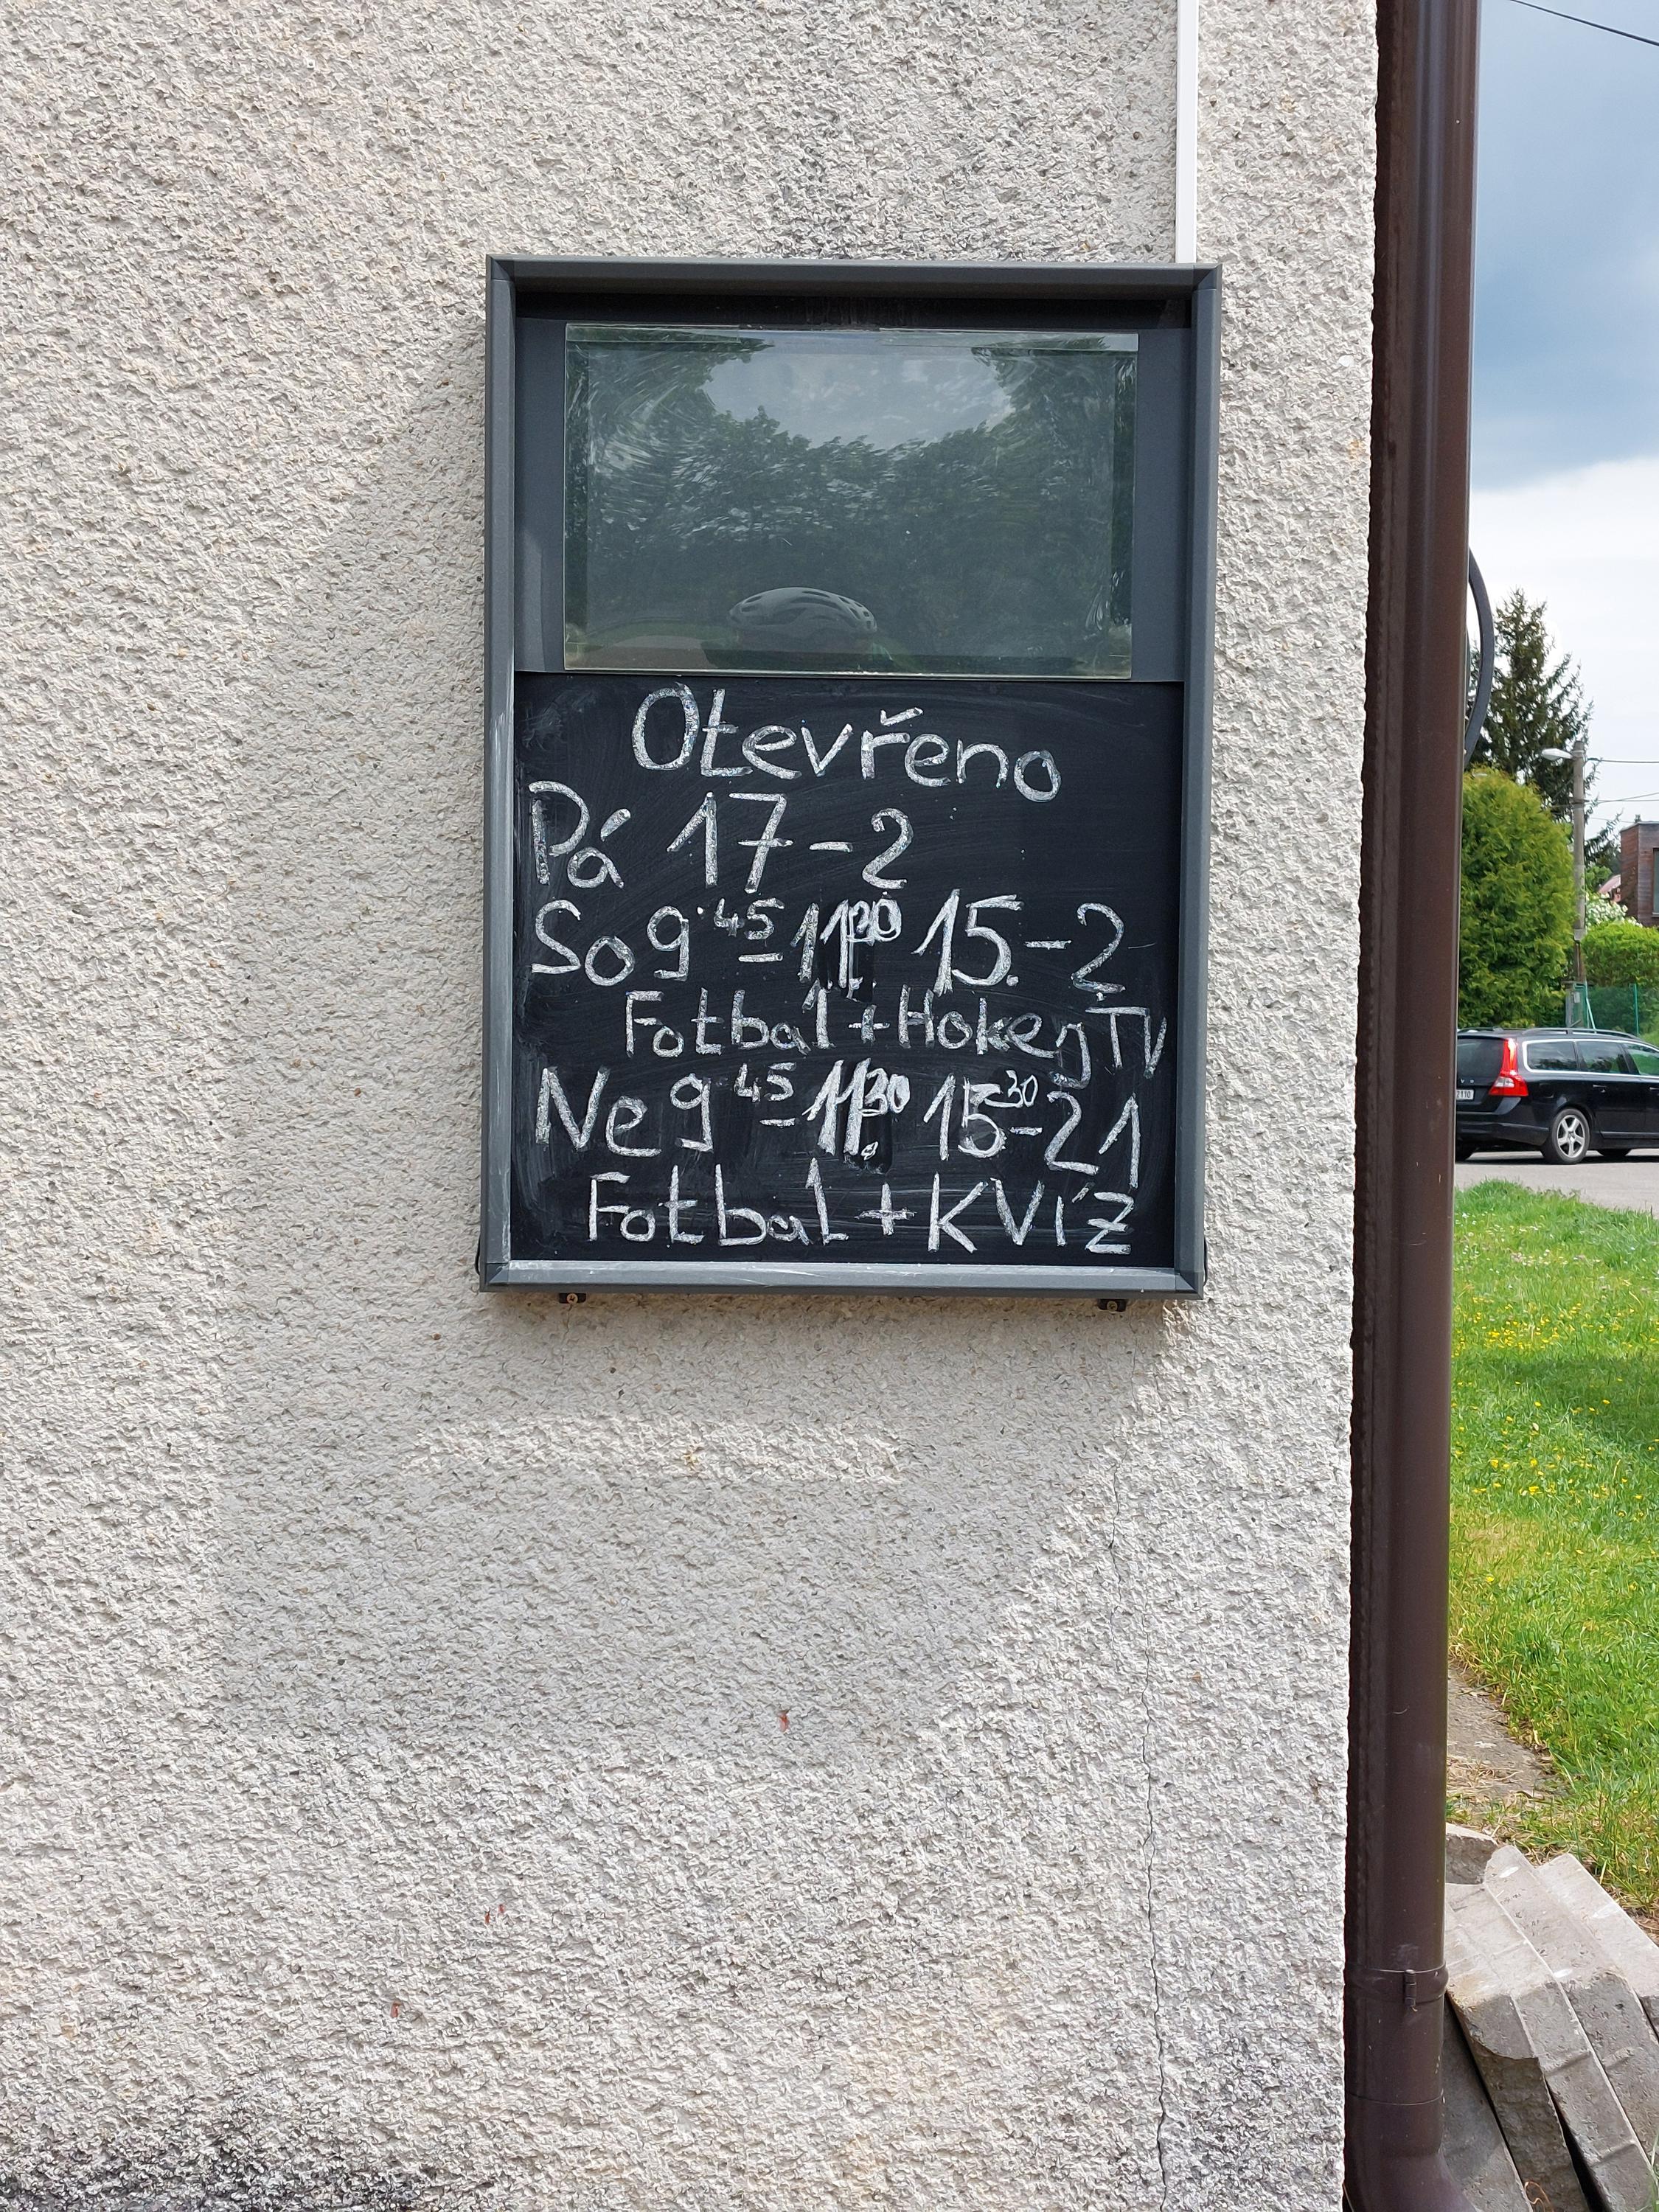 Otevřeno
Pá 17-2
So 9 45 - 11 30 15.-2
Fotbal + Hokej TV
Ne 9 45 - 11 30 15 30 - 21
Fotbal + KVÍZ